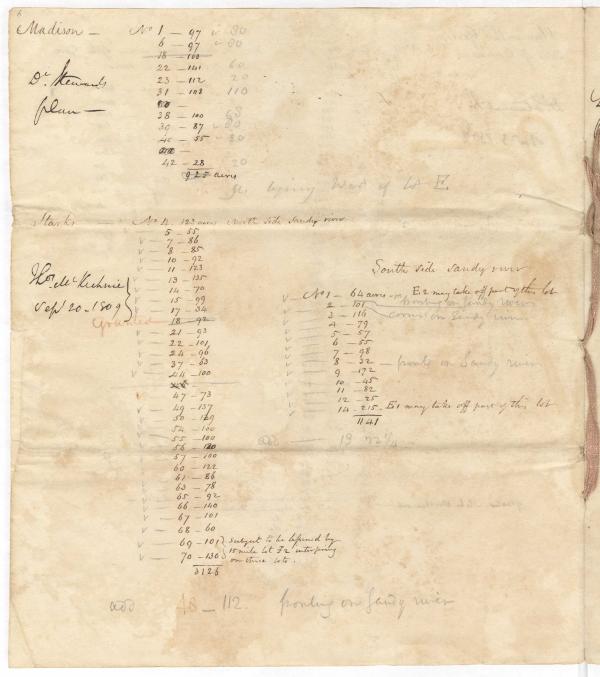 Madison — No 1 — 97 80
6 — 97 80
18 — 100
22 — 141 60
23 — 112 20
31 — 108 110
Dr Stewards
plan —
38 — 100 68
39 — 87 80
45 — 55 80
42 — 28 20
925 acres
lying West of Lot E
Starks — No 4 123 acres North side Sandy river
5 — 55
7 — 86
8 — 85
10 — 92
11 — 123
Thos McKechnie
Sept 20 — 1809
13 — 135
14 — 70
15 — 99
17 — 34
18 — 92
21 — 93
22 — 101
24 — 96
37 — 63
44 — 100
47 — 73
49 — 137
50 — 129
54 — 100
55 — 100
56 — 120
57 — 100
60 — 122
61 — 86
63 — 78
65 — 92
66 — 140
67 — 101
68 — 60
69 — 101 subject to be lessened by
70 — 130 15 mile Lot F2 on these lots.
3126
add 48 — 112. fronting on Sandy river
South side Sandy river
No 1 — 64 acres E2 may take off part of this lot
2 — 101 fronting on Sandy river
3 — 116 corner on Sandy river
4 — 79
5 — 57
6 — 55
7 — 98
8 — 32 — fronts on Sandy river
9 — 172
10 — 45
11 — 82
12 — 25
14 — 215 — E1 may take off part of this lot
1141
add — 19 72 1/4